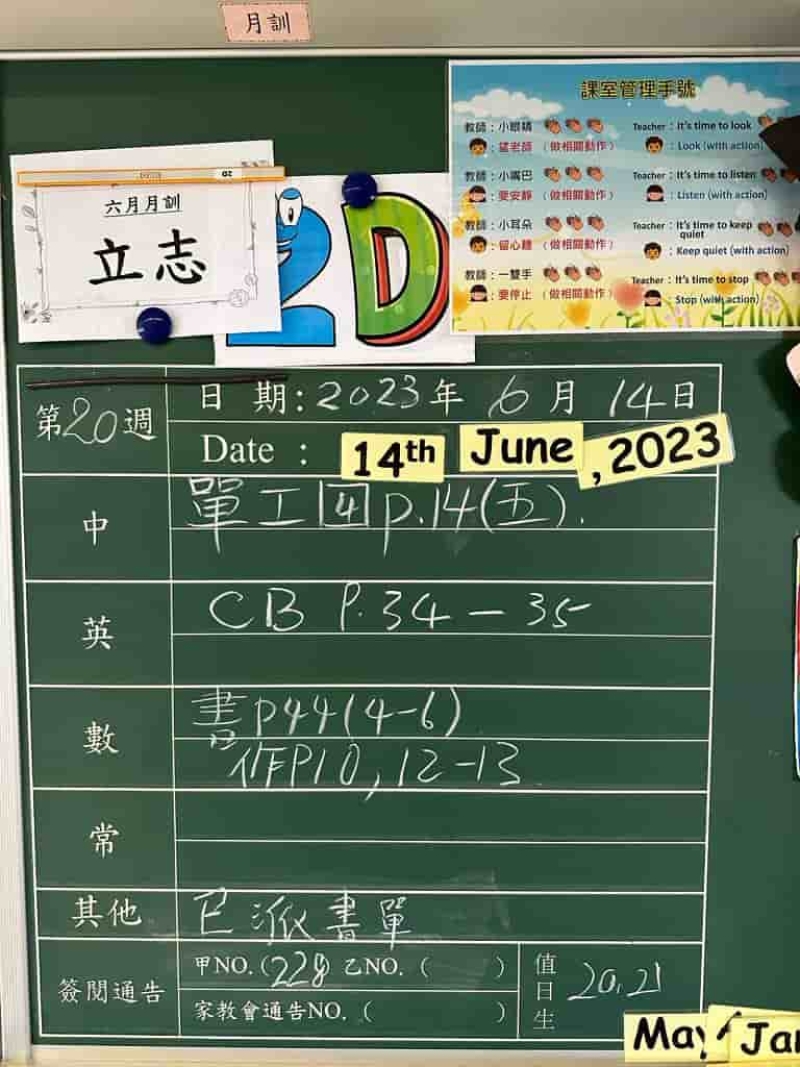 月訓
六月月訓
立志
2D
課室管理手號
教師：小眼睛
：望老師（做相關動作）
教師：小嘴巴
：要安靜（做相關動作）
教師：小耳朵
：留心聽（做相關動作）
教師：一雙手
：要停止（做相關動作）
Teacher：It's time to look
：Look (with action)
Teacher：It's time to listen
：Listen (with action)
Teacher：It's time to keep quiet
：Keep quiet (with action)
Teacher：It's time to stop
：Stop (with action)
第20週
日 期：2023年 6月 14日
Date : 14th June, 2023
中 單工 4 p.14(五).
英 CB P.34－35
數 書P44(4-6)
作P10,12-13
常
其他 已派書單
簽閱通告 甲NO.(228) 乙NO.（ ）
家教會通告NO.（ ）
值日生 20,21
May
Jan